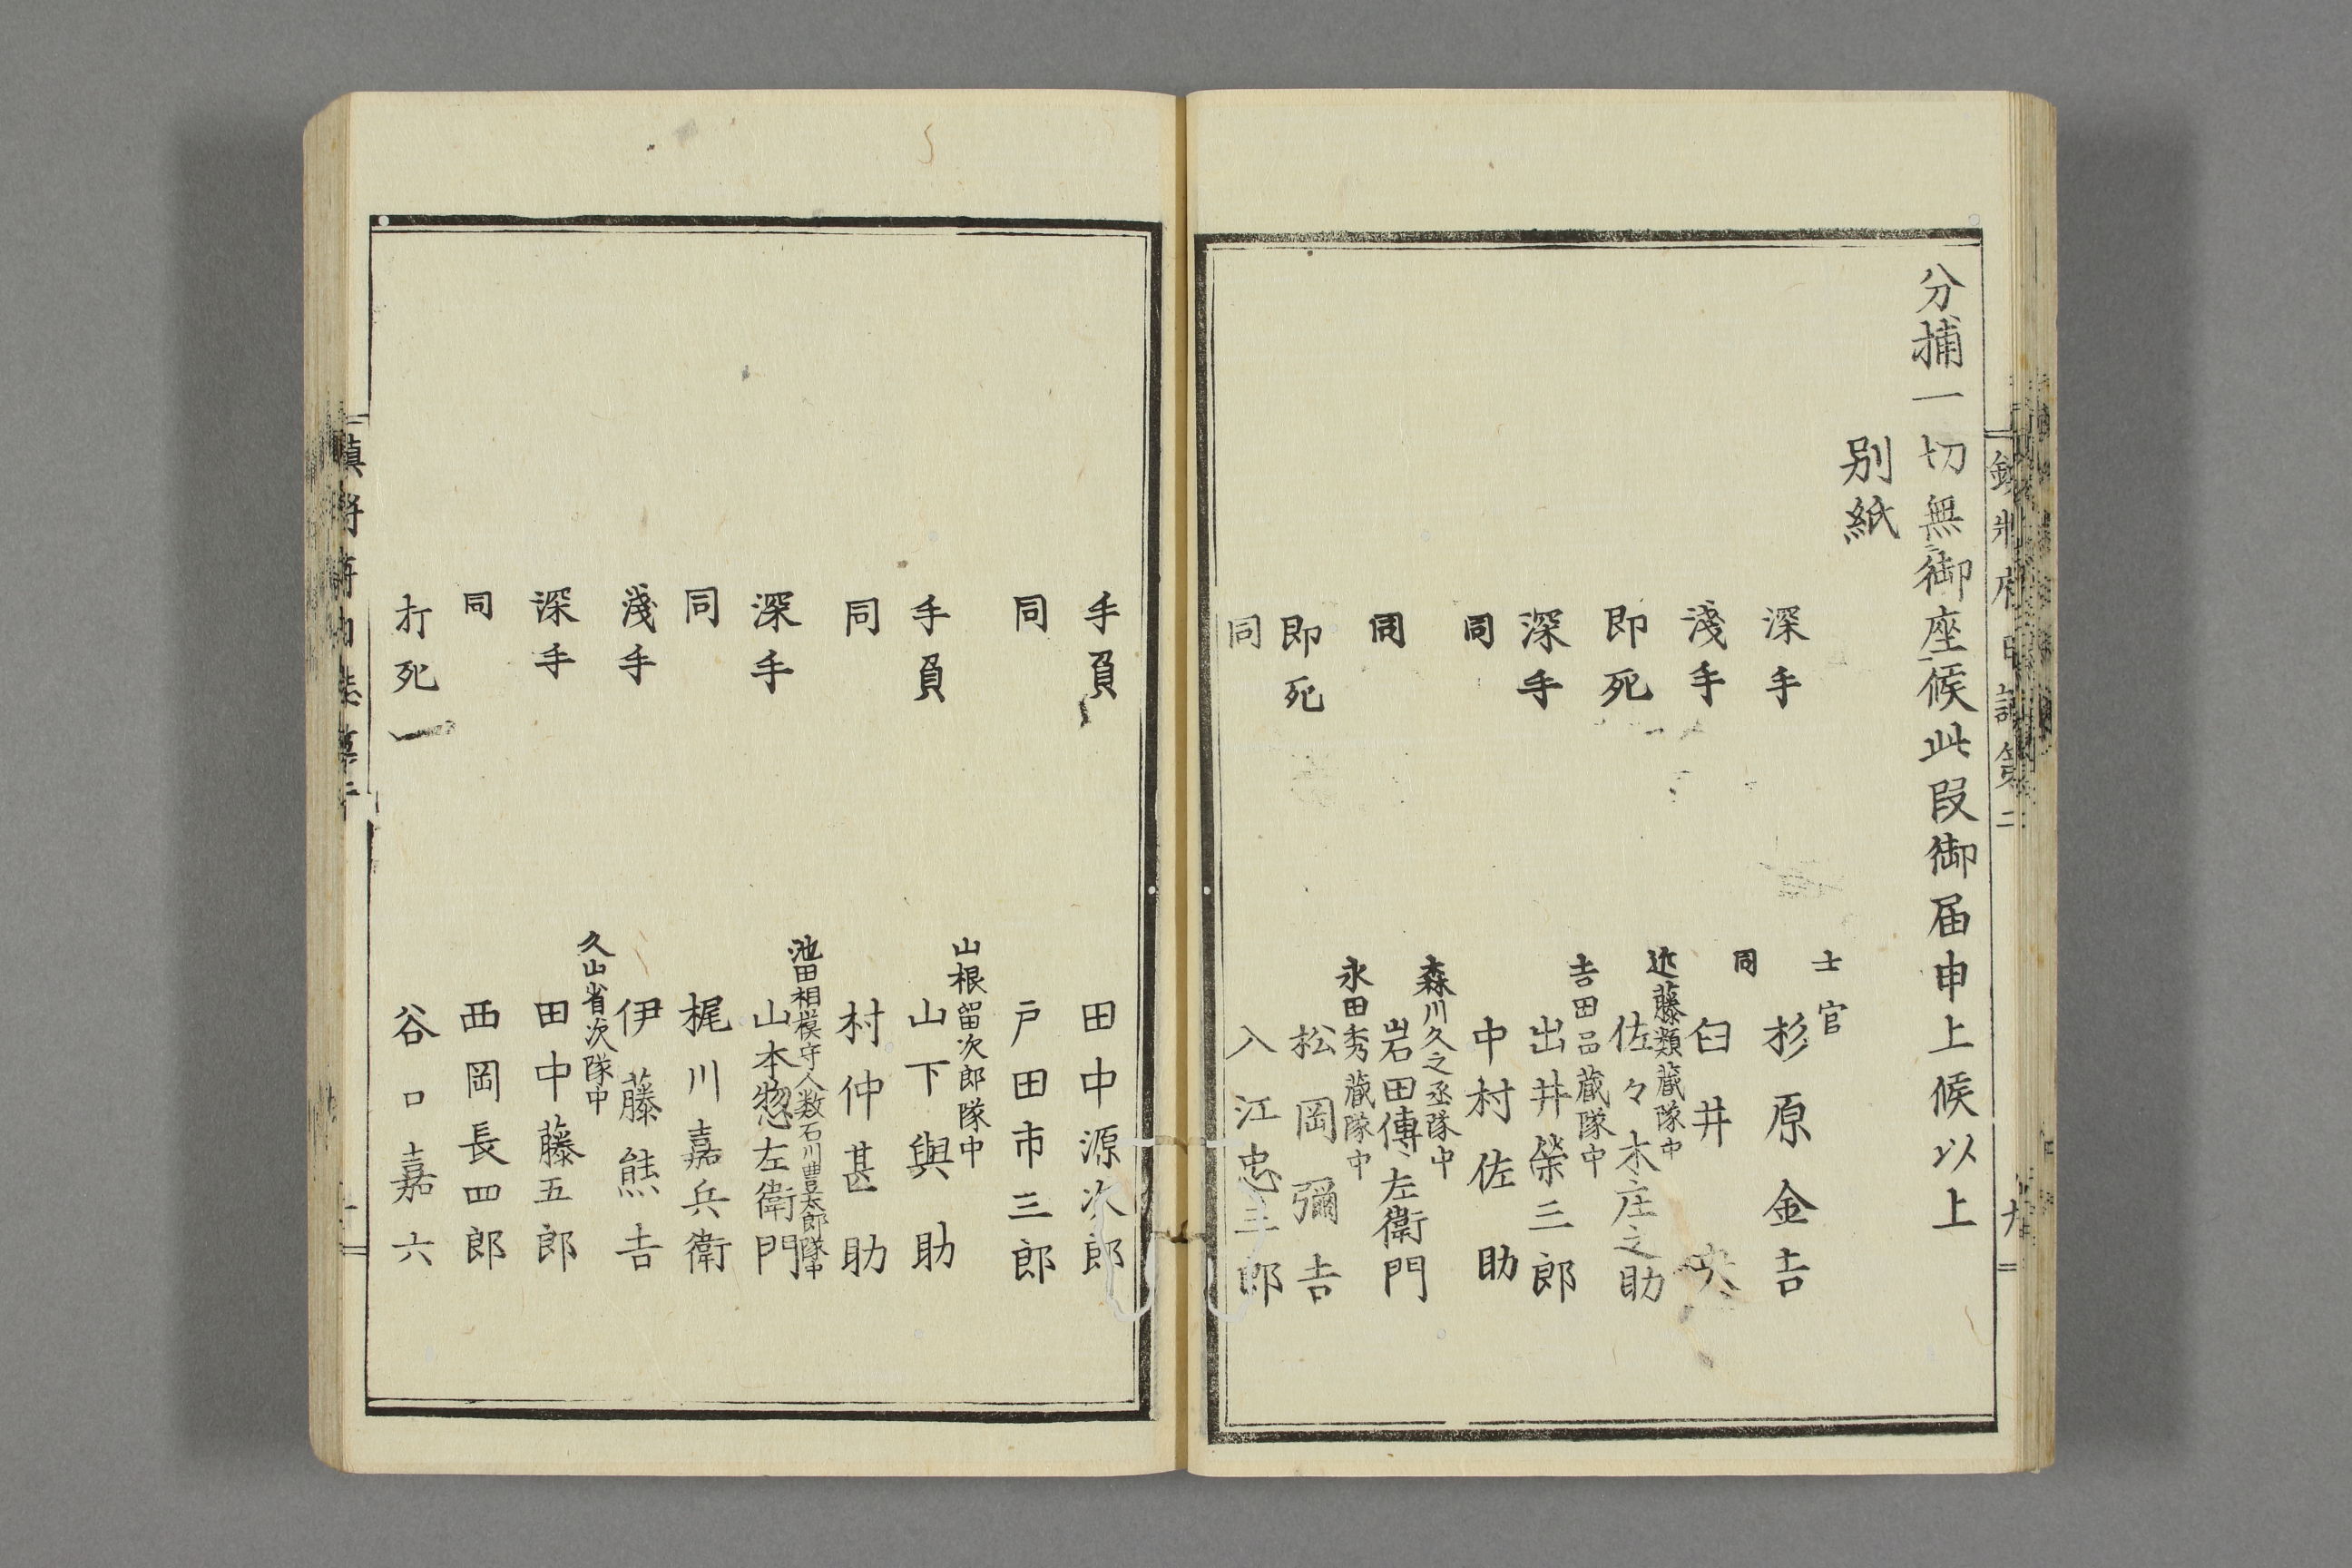 分捕一切無御座候此段御届申上候以上
別紙
士官
深手 杉原金吉
同
淺手 臼井
近藤類蔵隊中
即死 佐々木庄之助
吉田品蔵隊中
深手 出井榮三郎
同 中村佐助
森川久之丞隊中
同 岩田傳左衛門
永田秀蔵隊中
即死 松岡彌吉
同 入江忠三郎
手負 田中源次郎
同 戸田市三郎
山根留次郎隊中
手負 山下與助
同 村仲甚助
池田相模守人数石川豊太郎隊中
深手 山本惣左衛門
同 梶川嘉兵衛
淺手 伊藤熊吉
久山省次隊中
深手 田中藤五郎
同 西岡長四郎
打死 谷口嘉六